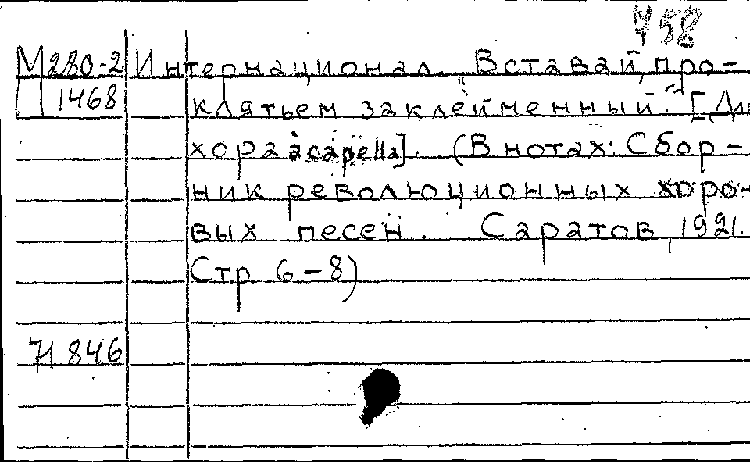 458
М280-2 Интернационал. "Вставай, про-
1468 клятьем заклейменный." [Для
хора a capella]. (В нотах: Сбор-
ник революционных хоро-
вых песен. Саратов, 1921.
Стр 6-8)
71846